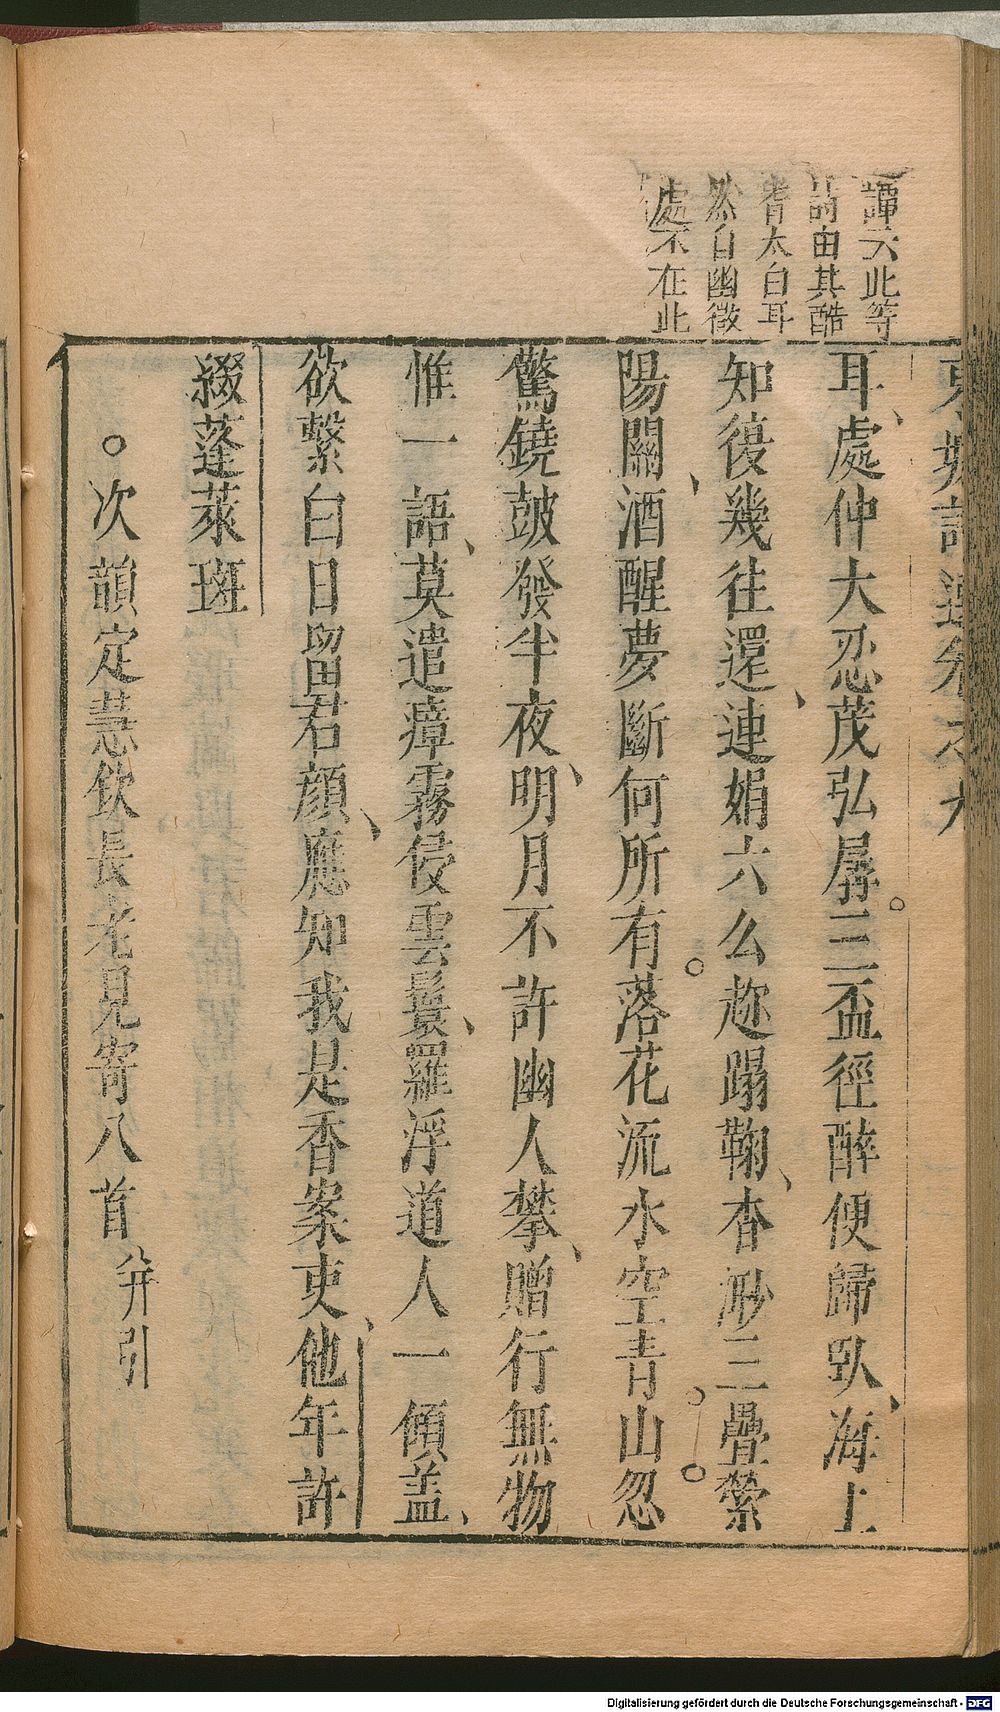 東坡詩選卷之
譚云此等
詩由其酷
肖太白耳
然自幽微
處不在此
耳、處仲大忍茂弘孱。三盃徑醉便歸臥、海上
知復幾往還、連娟六么趂蹋鞠、杳渺三疊縈
陽關、酒醒夢斷何所有。落花流水空青山。忽。
驚鐃鼓發半夜、明月不許幽人攀、贈行無物
惟一語、莫遣瘴霧侵雲鬟、羅浮道人一傾盖、
欲繫白日留君顏、應知我是香案吏、他年許
綴蓬萊班
○次韻定慧欽長老見寄八首 并引
Digitalisierung gefördert durch die Deutsche Forschungsgemeinschaft - DFG